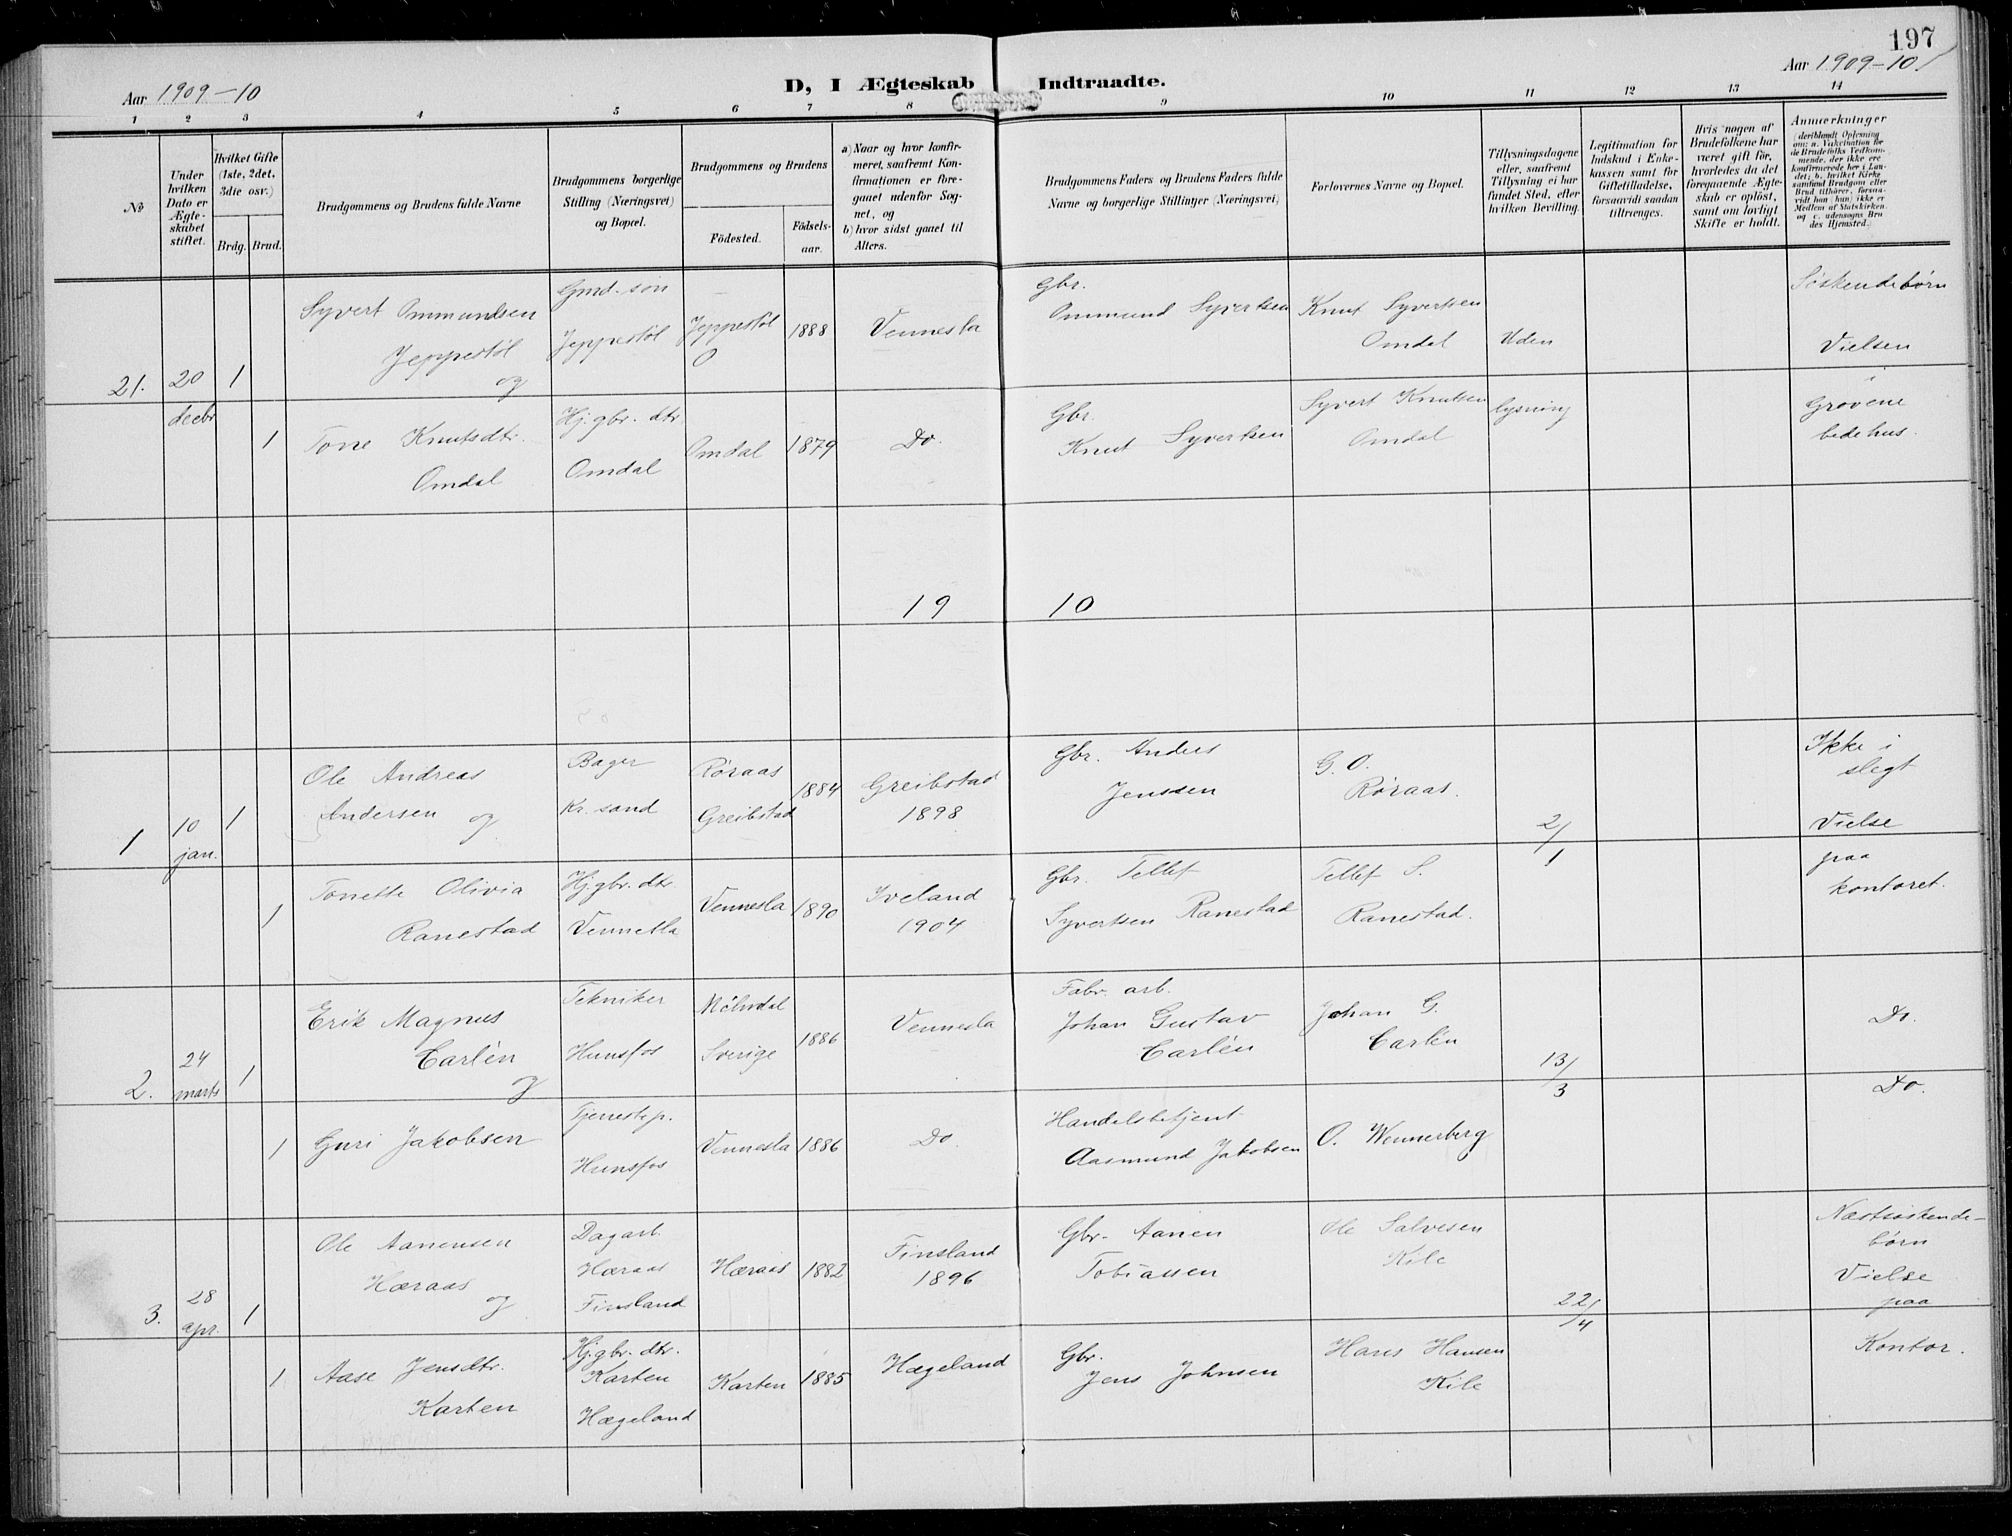 197
Aar 1909-10
D, I Ægteskab Indtraadte.
Aar 1909-10
1 2 3 4 5 6 7 8 9 10 11 12 13 14
No
Under hvilken Dato er Ægteskabet stiftet.
Hvilket Gifte (1ste, 2det, 3die osv.)
Brdg. Brud.
Brudgommens og Brudens fulde Navne
Brudgommens borgerlige Stilling (Næringsvei) og Bopæl.
Brudgommens og Brudens
Födested.
Födselsaar.
a) Naar og hvor konfirmeret, saafremt Konfirmationen er foregaaet udenfor Sognet, og
b) hvor sidst gaaet til Alters.
Brudgommens Faders og Brudens Faders fulde Navne og borgerlige Stillinger (Næringsvei)
Forlovernes Navne og Bopæl.
Tillysningsdagene eller, saafremt Tillysning ei har fundet Sted, efter hvilken Bevilling.
Legitimation for Indskud i Enkekassen samt for Giftetilladelse, forsaavidt saadan tiltrænges.
Hvis nogen af Brudefolkene har været gift för, hvorledes da det foregaaende Ægteskab er oplöst, samt om lovligt Skifte er holdt.
Anmærkninger
(deriblandt Oplysning om: a. Vaccination for de Brudefolks Vedkommende, der ikke ere konfirmerede her i Landet; b. hvilket Kirkesamfund Brudgom eller Brud tilhörer, forsaavidt han (hun) ikke er Medlem af Statskirken, og c. udensogns Brudes Hjemsted.)
21. 20 decbr 1
Syvert Ommundsen
Jeppestøl
og
Gmd. søn
Jeppestøl
Jeppestøl
O
1888
Vennesla
Gbr.
Ommund Syvertsen
Knut Syvertsen
Omdal
Uden
Søskendebørn
Vielsen
i
1
Tone Knutsdtr.
Omdal
Hj. gbr. dtr
Omdal
Omdal
1879
Do.
Gbr.
Knut Syvertsen
Syvert Knutsen
Omdal
lysning
Grovene
bedehus.
19 10
1 10 jan. 1
Ole Andreas
Andersen og
Bager
Kr. sand
Røraas
Greibstad
1884
Greibstad
1898
Gbr. Anders
Jenssen
G. O.
Røraas.
2/1
Ikke i
slegt
Vielse
1
Tonette Olivia
Ranestad
Hj. gbr. dtr.
Vennesla
Vennesla
1890
Iveland
1904
Gbr. Tellef
Syvertsen Ranestad
Tellef S.
Ranestad.
paa
kontoret.
2. 24 marts 1
Erik Magnus
Carlén
og
Tekniker
Hunsfos
Mölndal
Sverige
1886
Vennesla
Fabr. arb.
Johan Gustav
Carlén
Johan G.
Carlén
13/3
Do.
1
Guri Jakobsen
Tjenestep.
Hunsfos
Vennesla
1886
Do.
Handelsbetjent
Aasmund Jakobsen
O. Wennerberg
Do.
3. 28 apr. 1
Ole Aanensen
Hæraas
og
Dagarb.
Hæraas
Finsland
Hæraas
1882
Finsland
1896
Gbr. Aanen
Tobiassen
Ole Salvesen
Kile
22/4
Næstsøskende-
børn
Vielse
paa
1
Aase Jensdtr.
Karten
Hj. gbr. dtr.
Karten
Hægeland
Karten
1885
Hægeland
Gbr.
Jens Johnsen
Hans Hansen
Kile
Kontor.